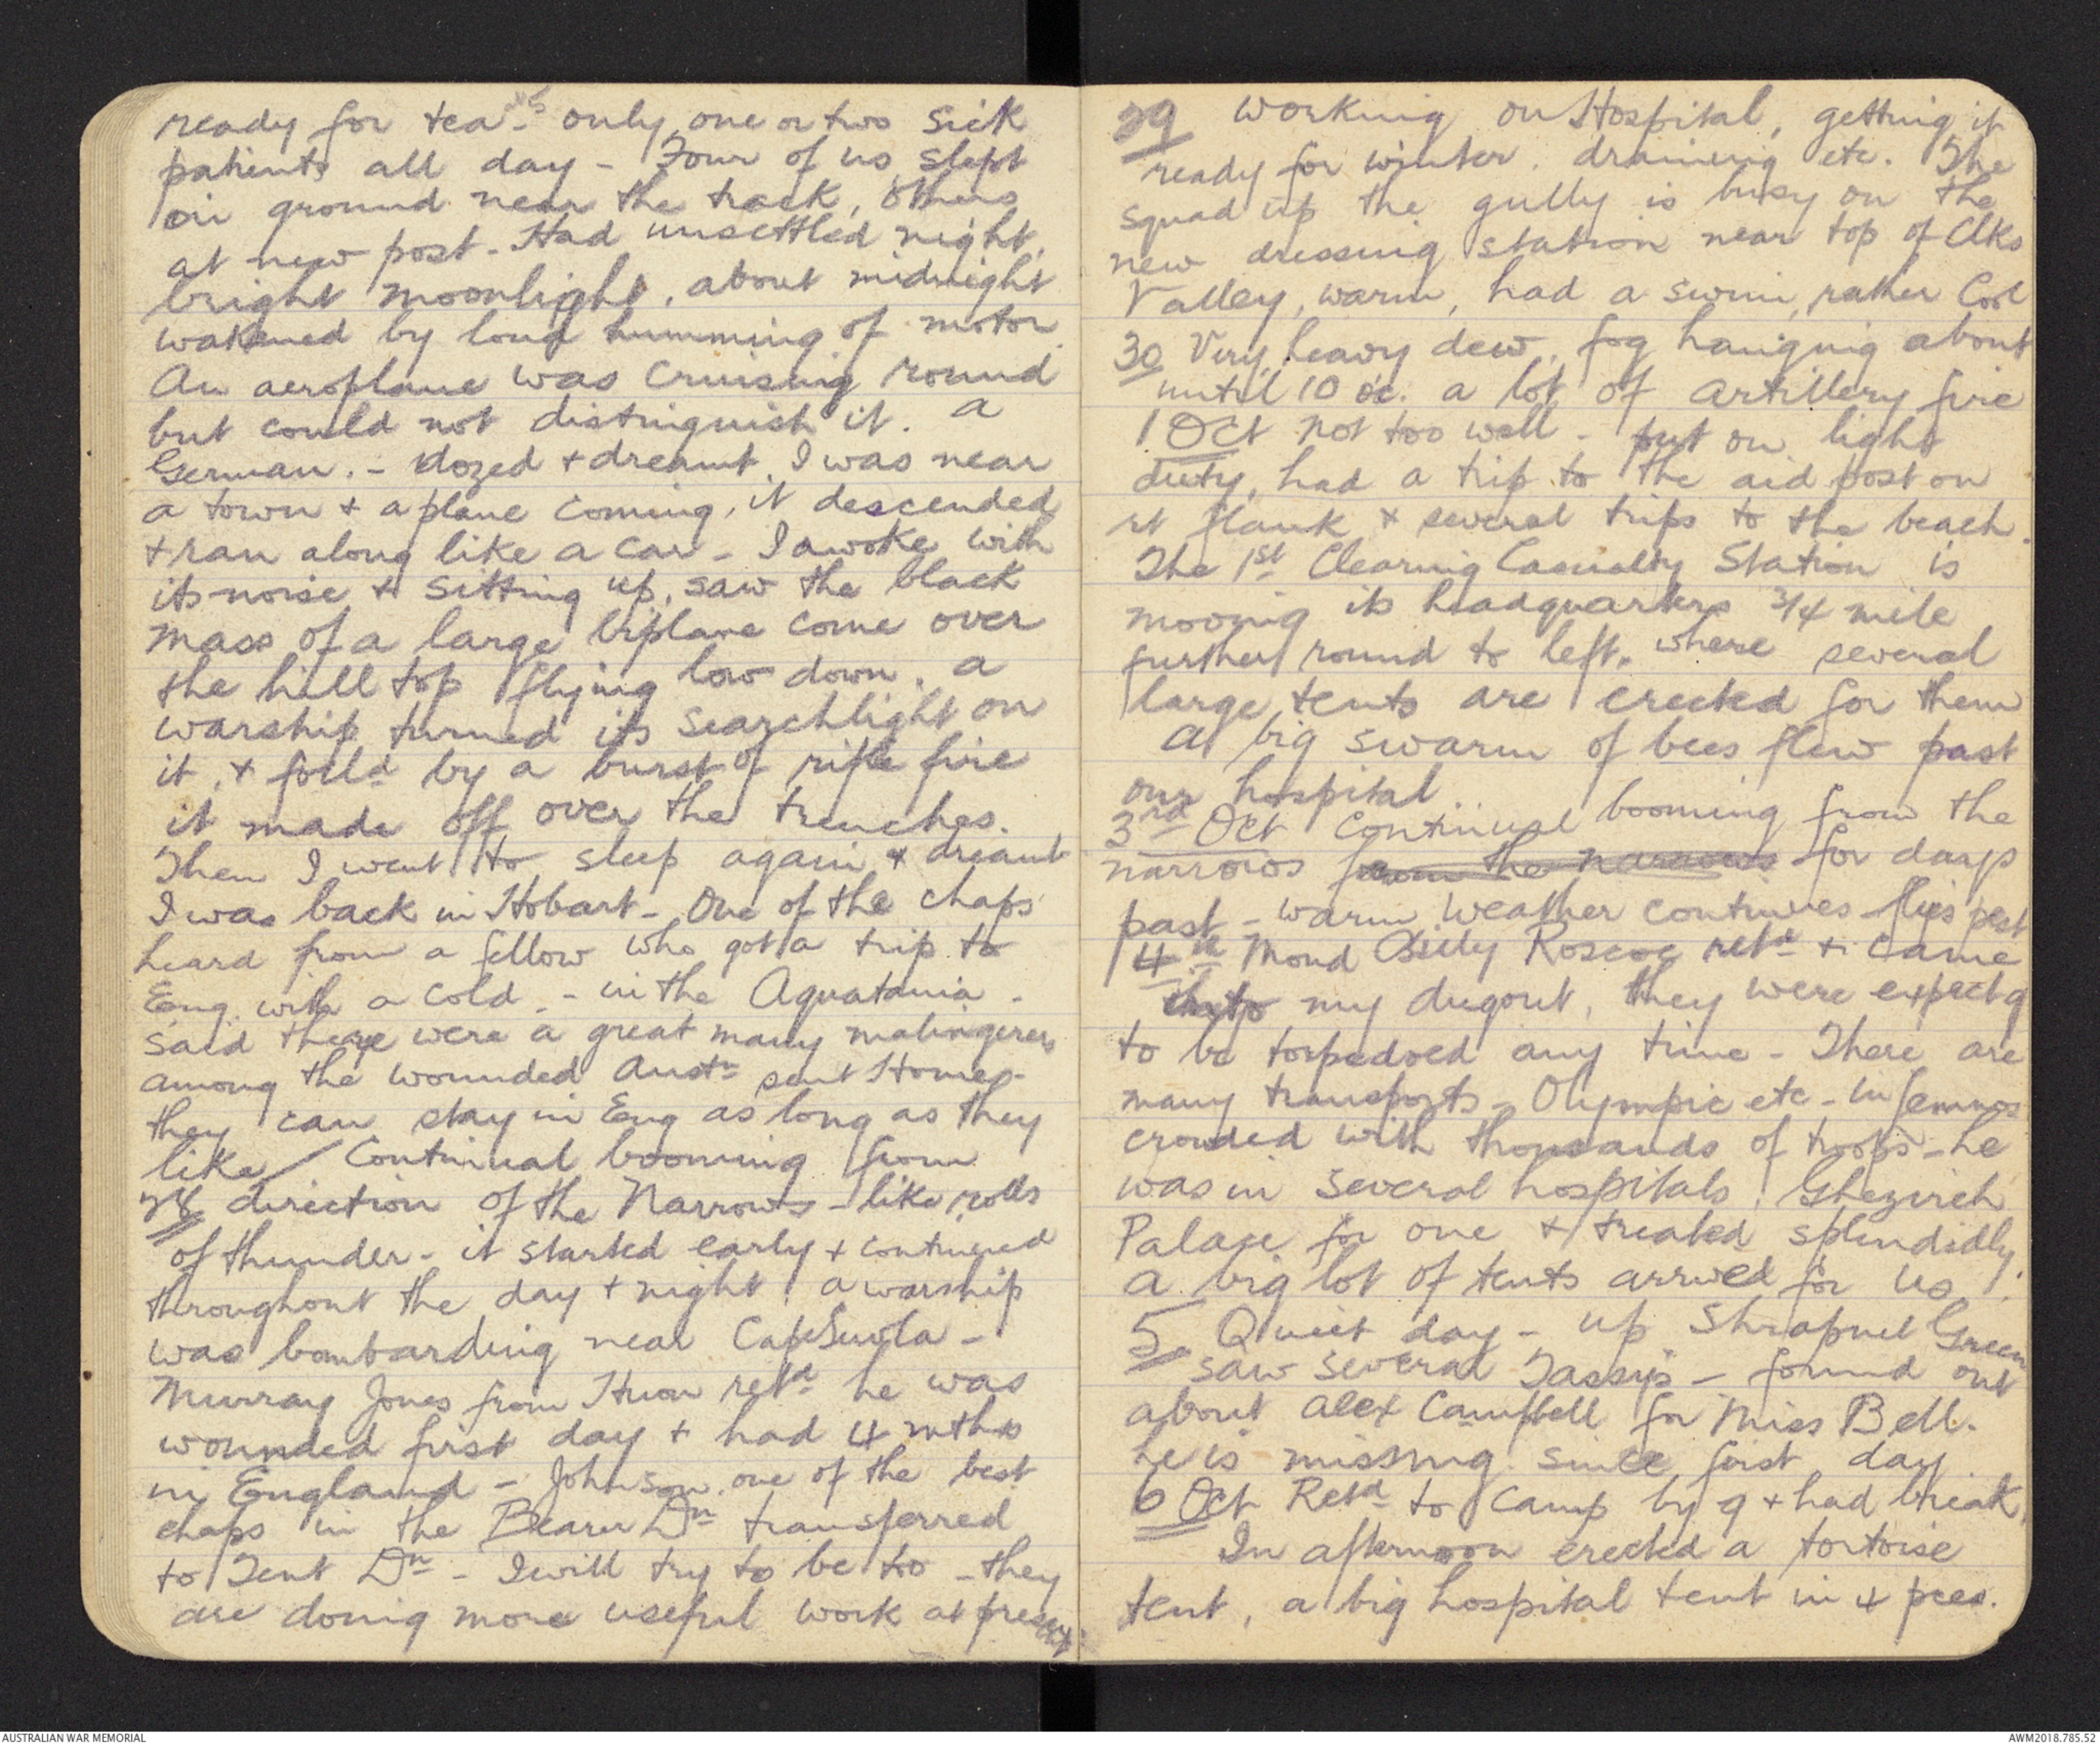 ready for tea - only one or two sick
patients all day - Four of us slept
on ground near the track, others
at new post - Had unsettled night,
bright moonlight, about midnight
wakened by loud humming of motor.
An aeroplane was cruising round
but could not distinguish it. a
German. - dozed + dreamt I was near
a town + a plane coming, it descended
+ ran along like a car - I awoke with
its noise + sitting up, saw the black
mass of a large biplane come over
the hill top flying low down. a
warship turned its searchlight on
it, + folld by a burst of rifle fire
it made off over the trenches.
Then I went to sleep again + dreamt
I was back in Hobart - One of the chaps
heard from a fellow who got a trip to
Eng. with a cold - in the Aquatania -
said there were a great many malingerers
among the wounded Austns sent Home -
they can stay in Eng as long as they
like / Continual booming from
28 direction of the Narrows - like rolls
of thunder - it started early + continued
throughout the day + night. a warship
was bombarding near Cape Suvla -
Murray Jones from Huon retd he was
wounded first day + had 4 mths
in England - Johnson one of the best
chaps in the Bearer Dn transferred
to Tent Dn - I will try to be too - they
are doing more useful work at present.
29 working on Hospital, getting it
ready for winter. draining etc. The
squad up the gully is busy on the
new dressing station near top of Alks
Valley, warm, had a swim, rather Cool
30 Very heavy dew, fog hanging about
until 10 oc. a lot of artillery fire
1 Oct not too well - put on light
duty, had a trip to the aid post on
rt flank + several trips to the beach.
The 1st Clearing Casualty Station is
moving its headquarters 3/4 mile
further round to left, where several
large tents are erected for them
A big swarm of bees flew past
our hospital
3rd Oct Continual booming from the
narrows from the narrows for days
past - warm weather continues flies pest
4th Mond Billy Roscoe retd + came
into my dugout, they were expectg
to be torpedoed any time - There are
many transports - Olympic etc - in Lemnos
crowded with thousands of troops - he
was in several hospitals, Ghezireh
Palace for one + treated splendidly.
A big lot of tents arrived for us.
5 Quiet day - up Shrapnel Green
saw several Tassys - found out
about Alex Campbell for Miss Bell.
he is missing since first day
6 Oct Retd to Camp by 9 + had break.
In afternoon erected a tortoise
tent, a big hospital tent in 4 pces.
AUSTRALIAN WAR MEMORIAL
AWM2018.785.52